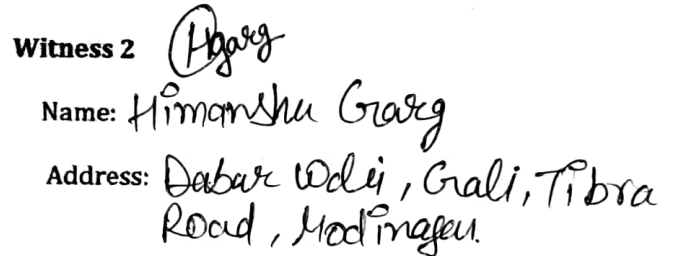 Witness 2 Hgarg
Name: Himanshu Garg
Address: Dabar Wali, Gali, Tibra
Road, Modinagar.